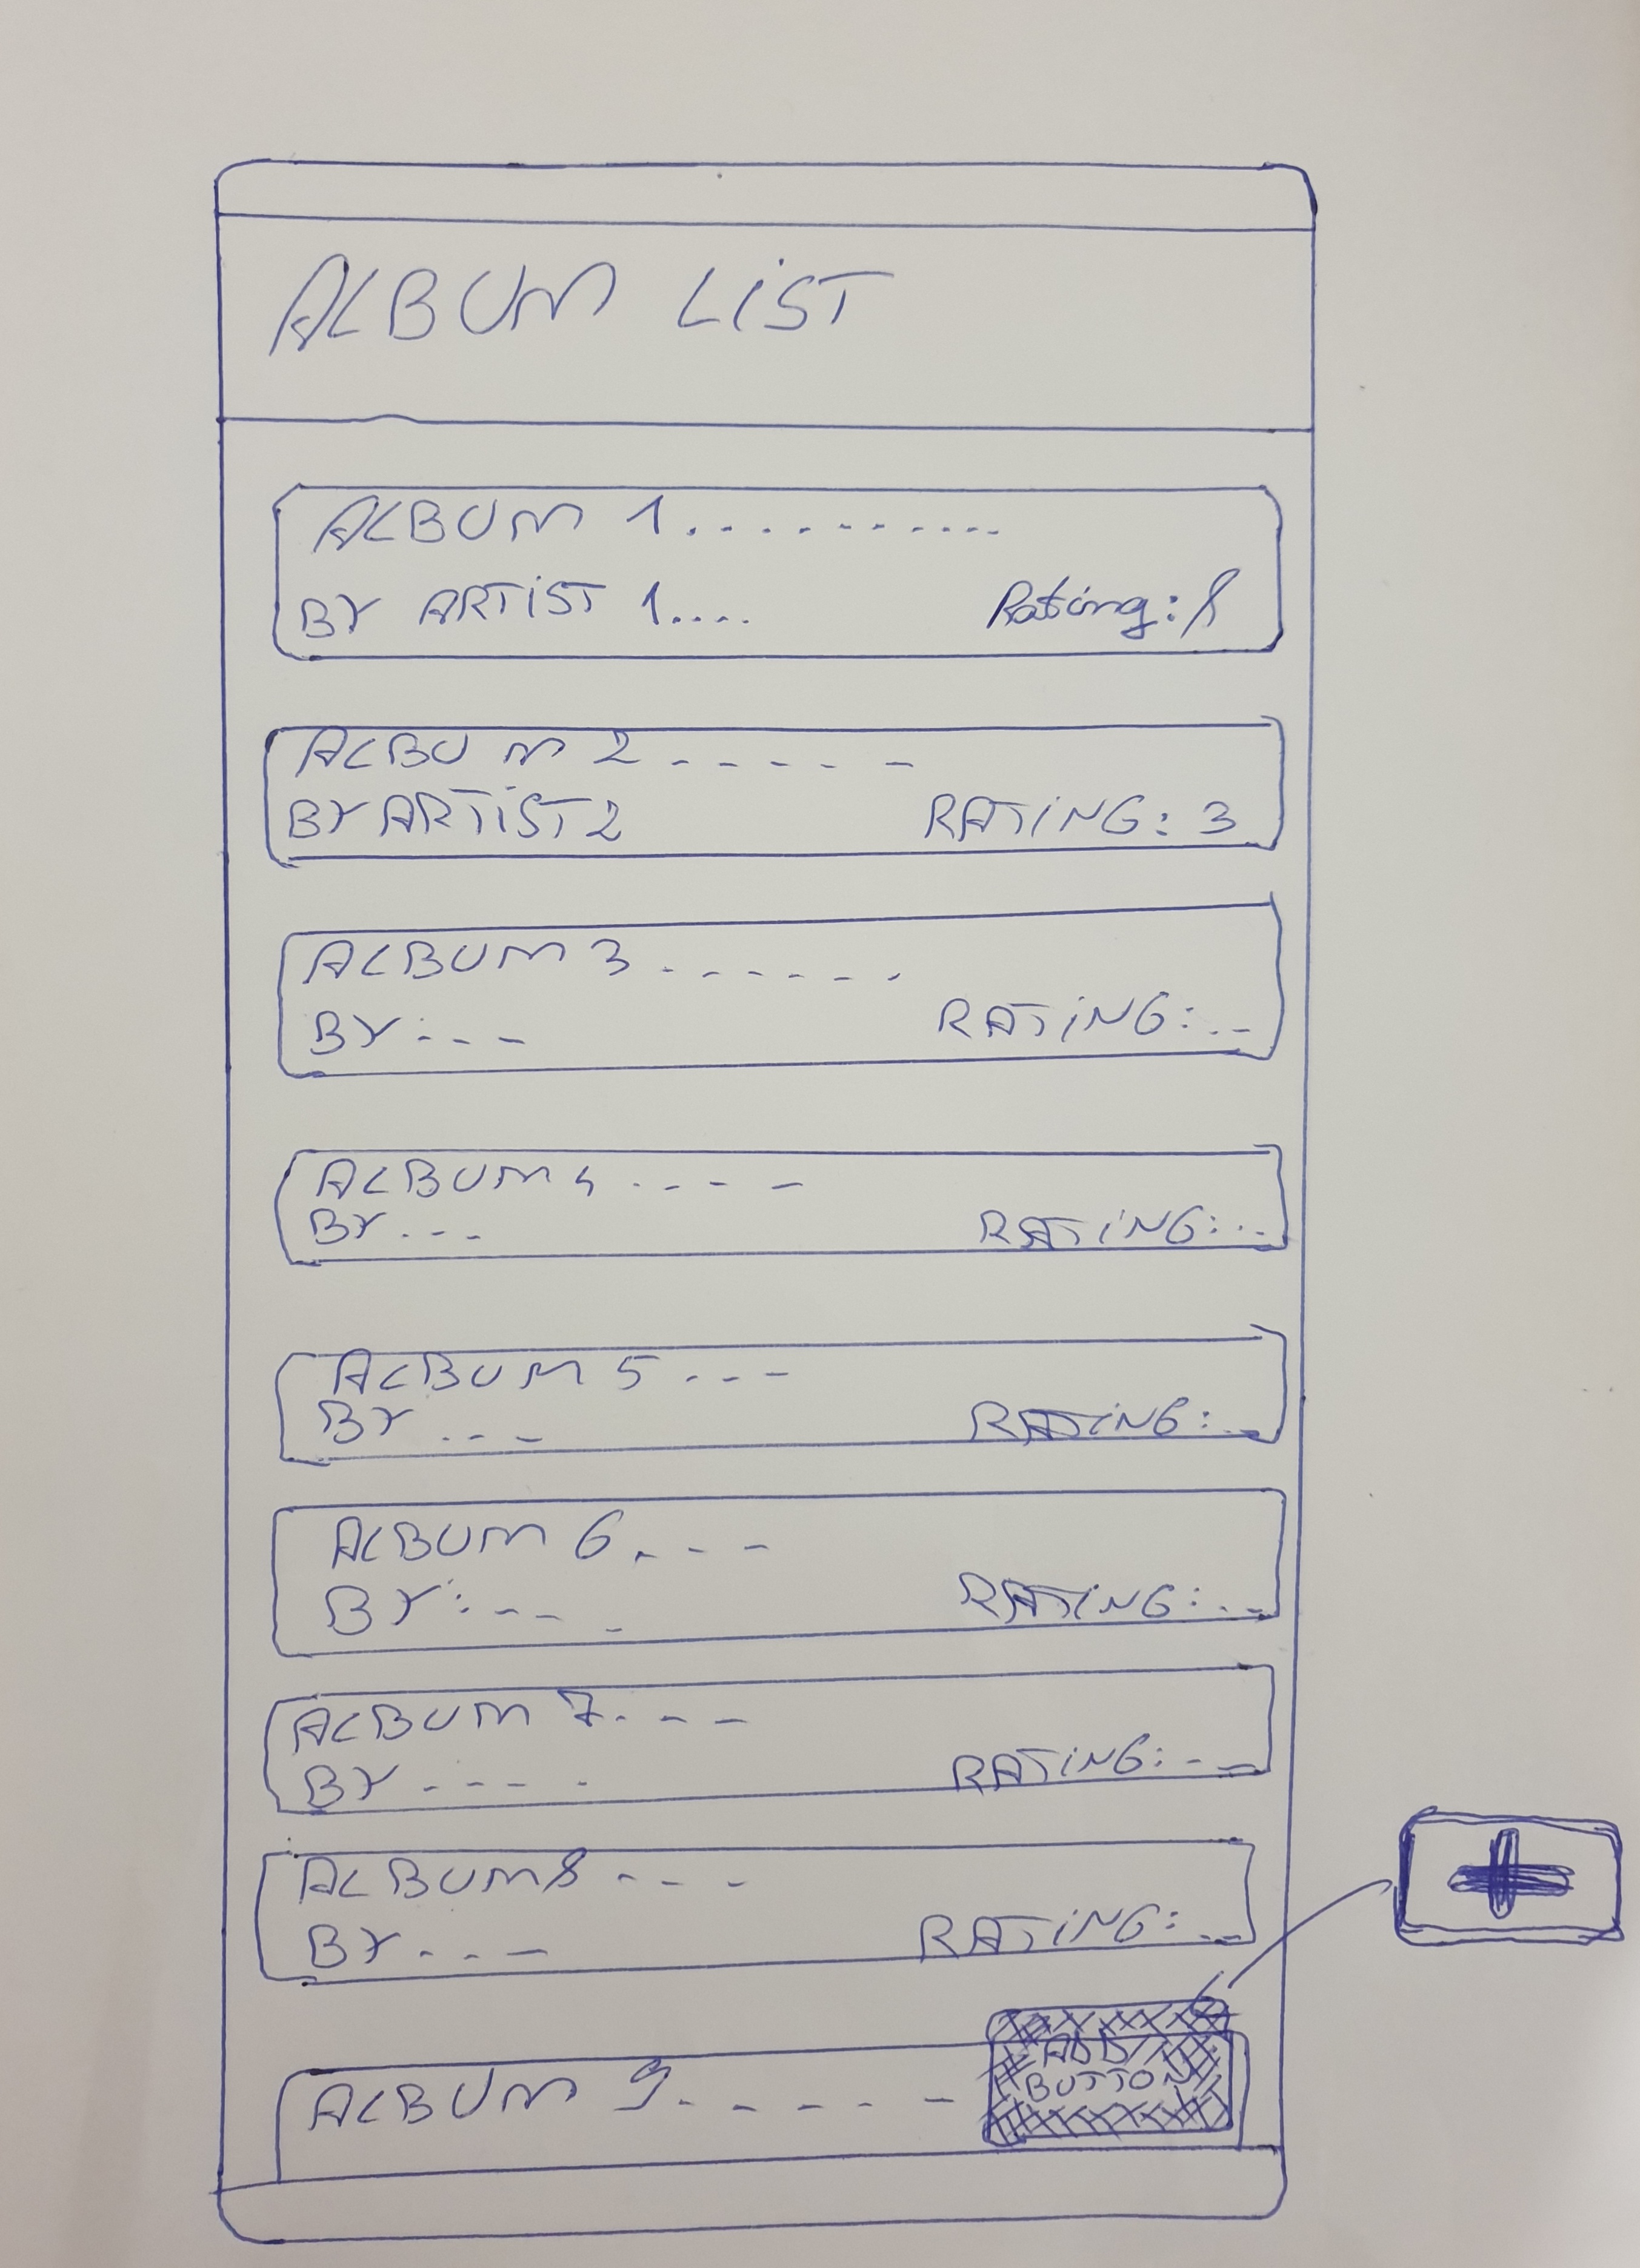 ALBUM LIST
ALBUM 1...........
BY ARTIST 1.... Rating: 8
ALBUM 2 - - - - - -
BY ARTIST 2 RATING: 3
ALBUM 3 . - - - - - .
BY: - - - RATING: . _
ALBUM 4 . - - - -
BY . - - RATING: . .
ALBUM 5 - - -
BY . - - RATING: _
ALBUM 6 . - - -
BY: - - - RATING: . _
ALBUM 7 . - - -
BY - - - - . RATING: - _
ALBUM 8 - - -
BY . - - - RATING: _
ALBUM 9 . - - - - - -
ADD
BUTTON
+